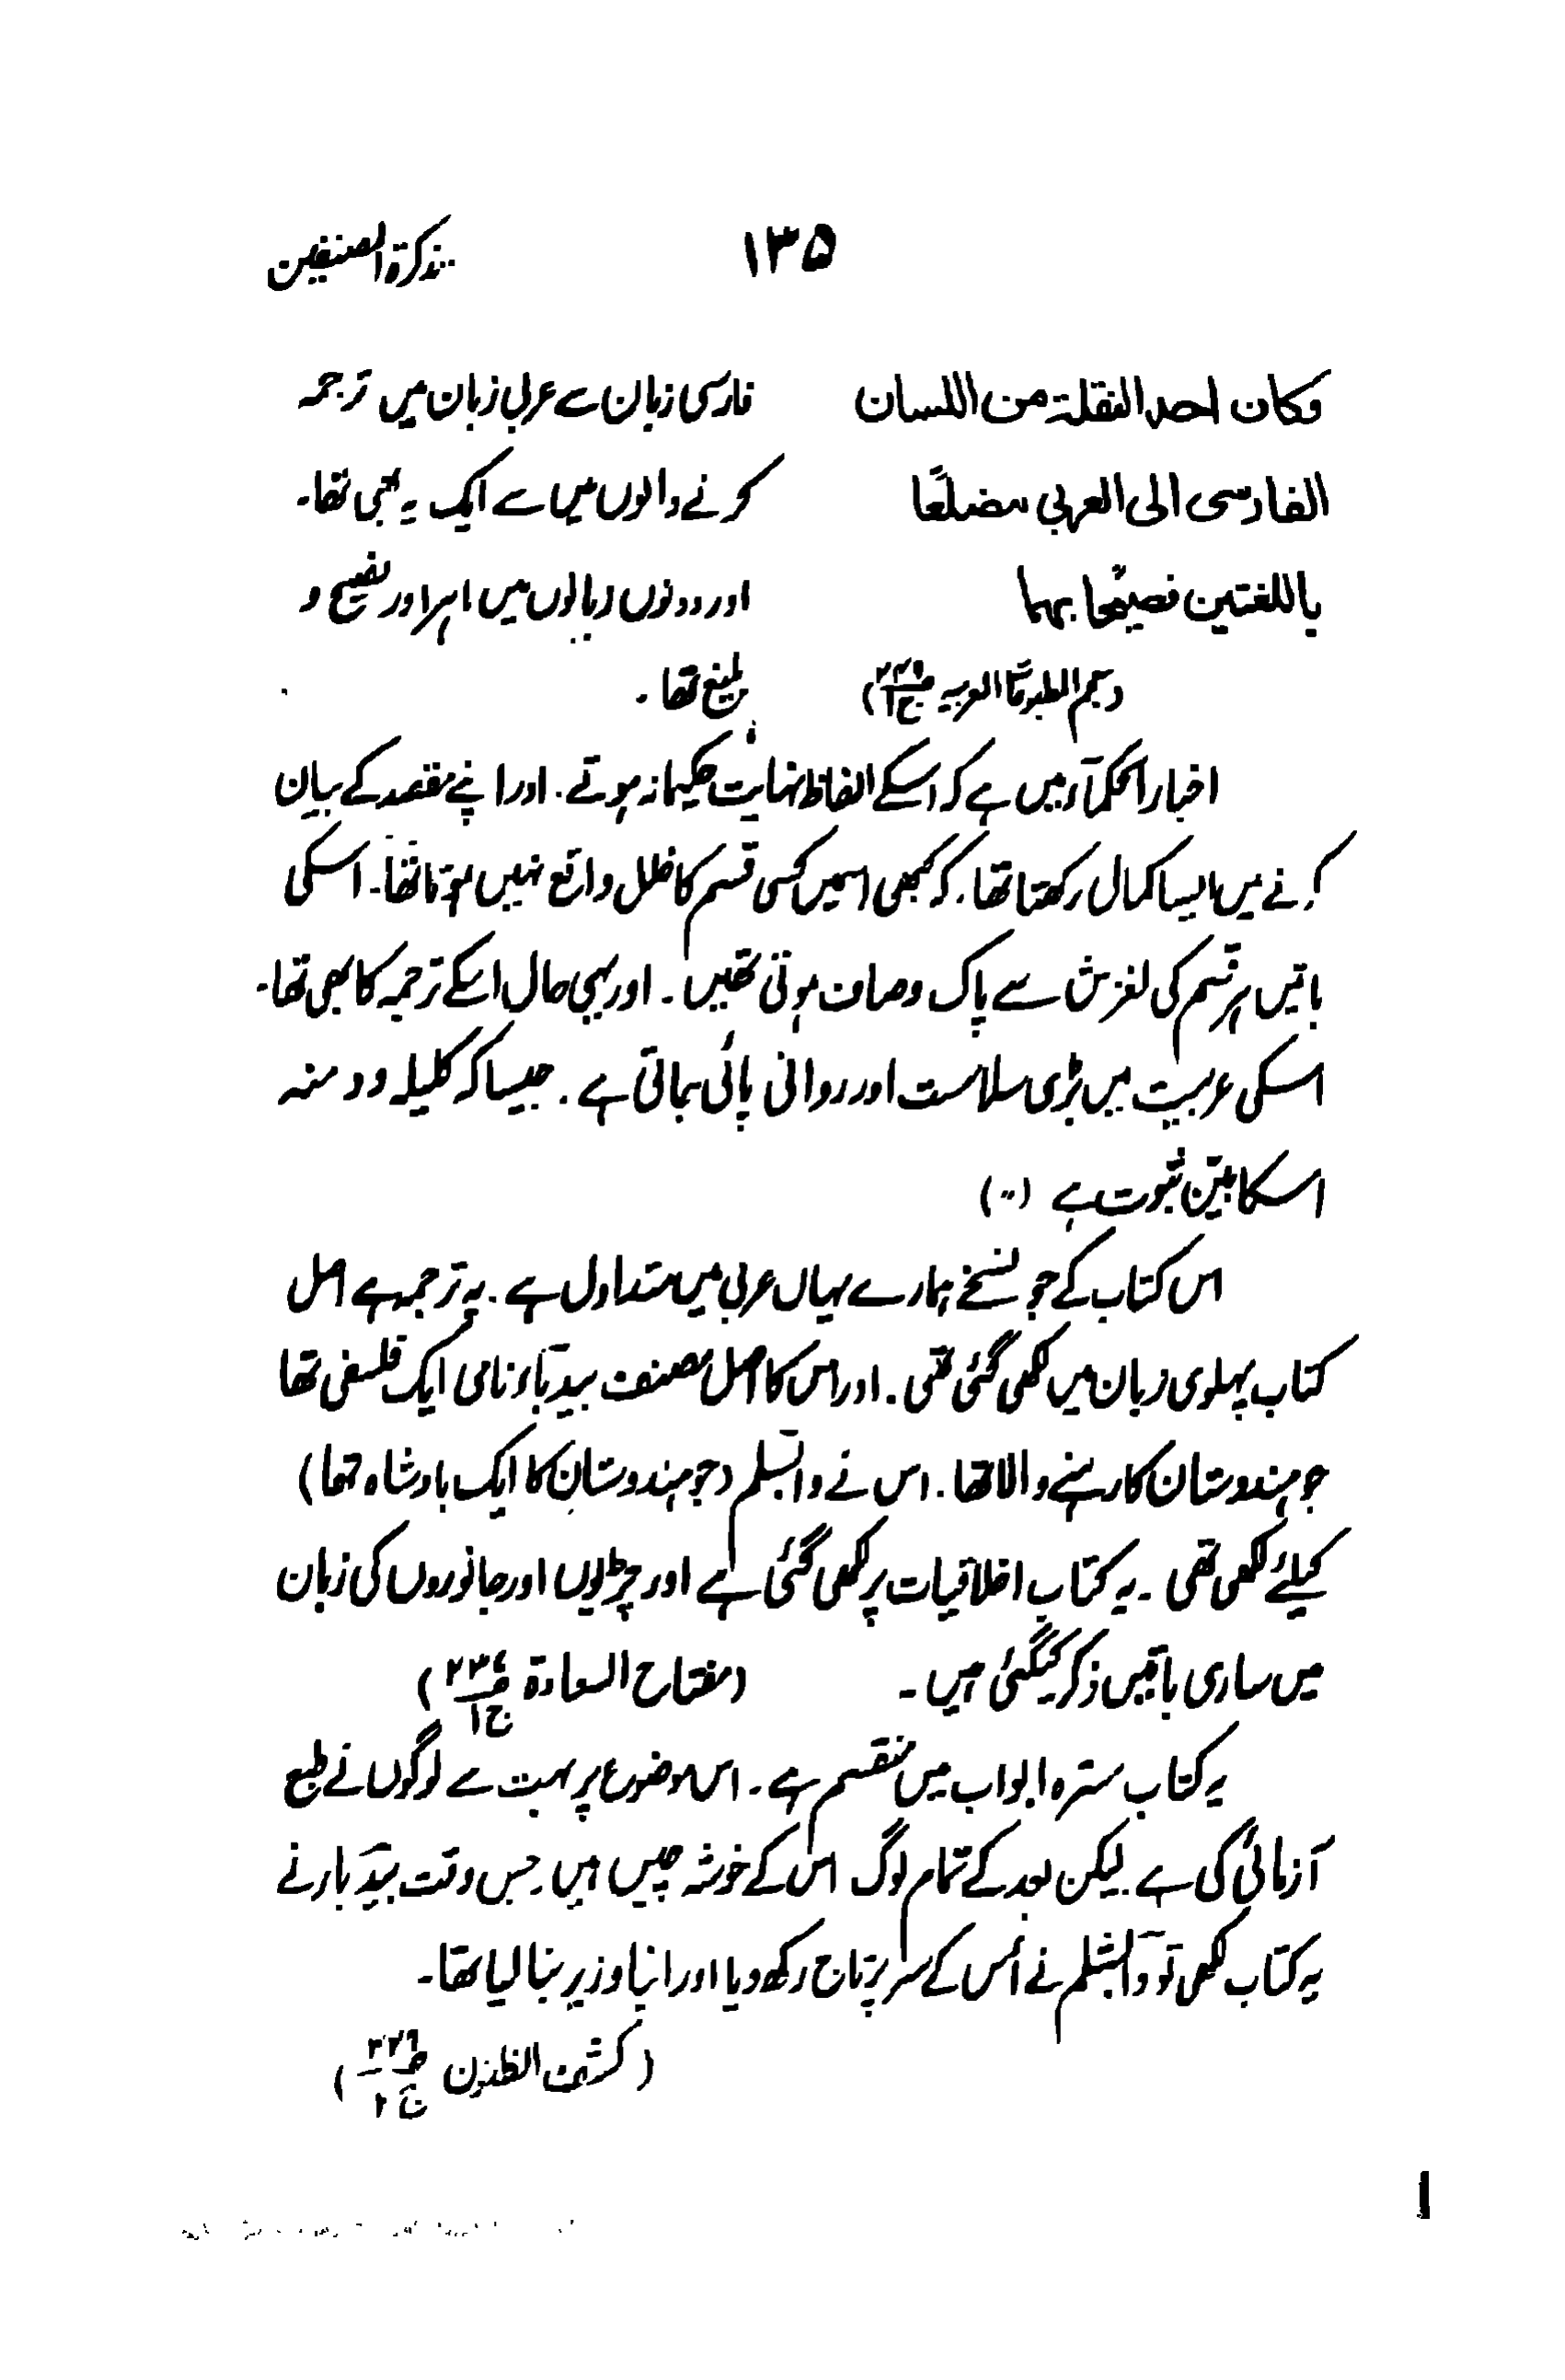 ۱۳۵ تذکرۃ المصنفین
وکان احد النقلۃ من اللسان فارسی زبان سے عربی زبان میں ترجمہ
الفارسی الی العربی مضلعًا کرنے والوں میں سے ایک یہ بھی تھا۔
باللغتین فصیحًا بہما اور دونوں زبانوں میں ماہر اور فصیح و
بلیغ تھا۔
اخبار الحکمآء میں ہے کہ اسکے الفاظ نہایت حکیمانہ ہوتے. اور اپنے مقصد کے بیان
کرنے میں ایسا کمال رکھتا تھا، کہ کبھی اسمیں کسی قسم کا خلل واقع نہیں ہوتا تھا۔ اسکی
باتیں ہر قسم کی لغزش سے پاک وصاف ہوتی تھیں۔ اور یہی حال اسکے ترجمہ کا بھی تھا۔
اسکی عربیت میں بڑی سلاست اور روانی پائی جاتی ہے. جیسا کہ کلیلہ ودمنہ
اسکا بیّن ثبوت ہے (۰۰)
اس کتاب کے جو نسخے ہمارے یہاں عربی میں متداول ہے. یہ ترجمہ ہے اصل
کتاب پہلوی زبان میں لکھی گئی تھی. اور اس کا اصل مصنف بیدپاء نامی ایک فلسفی تھا
جو ہندوستان کا رہنے والا تھا. اس نے دابشلم (جو ہندوستان کا ایک بادشاہ تھا)
کیلئے لکھی تھی۔ یہ کتاب اخلاقیات پر لکھی گئی ہے اور چڑیوں اور جانوروں کی زبان
میں ساری باتیں ذکر کیگئی ہیں۔ (مفتاح السعادۃ ج۱)
یہ کتاب سترہ ابواب میں منقسم ہے۔ اس موضوع پر بہت سے لوگوں نے طبع
آزمائی کی ہے لیکن بعد کے تمام لوگ اس کے خوشہ چیں ہیں. جس وقت بیدپاء نے
یہ کتاب لکھی تو دآبشلم نے اُس کے سر پر تاج رکھ دیا اور اپنا وزیر بنا لیا تھا۔
(کشف الظنون ج۲)